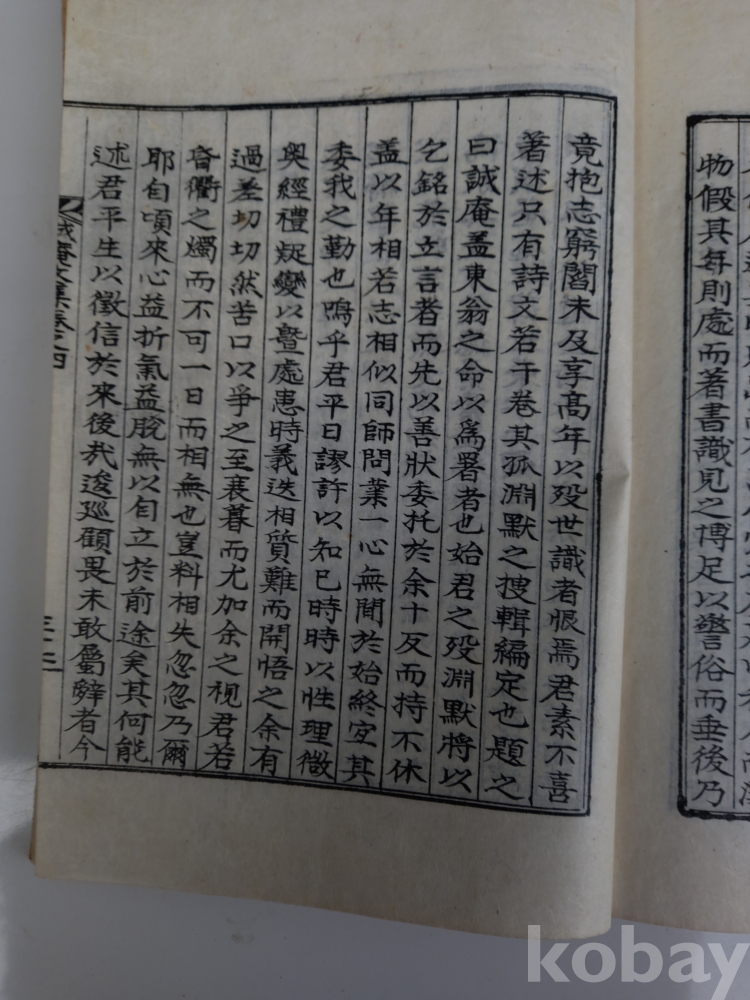 物假其年則處而著書識見之博足以譽俗而垂後乃
竟抱志窮閻未及享高年以歿世識者恨焉君素不喜
著述只有詩文若干卷其孤淵默之搜輯編定也題之
曰誠庵盖東翁之命以爲署者也始君之歿淵默將以
乞銘於立言者而先以善狀委托於余十反而持不休
盖以年相若志相似同師問業一心無間於始終宜其
委我之勤也嗚乎君平日謬許以知已時時以性理微
奧經禮疑變以曁處患時義迭相質難而開悟之余有
過差切切然苦口以爭之至衰暮而尤加余之視君若
昏衢之燭而不可一日而相無也豈料相失忽忽乃爾
耶自頃來心益折氣益脫無以自立於前途矣其何能
述君平生以徵信於來後㢤逡巡顧畏未敢屬辭者今
誠庵文集卷之四
三十三
kobay